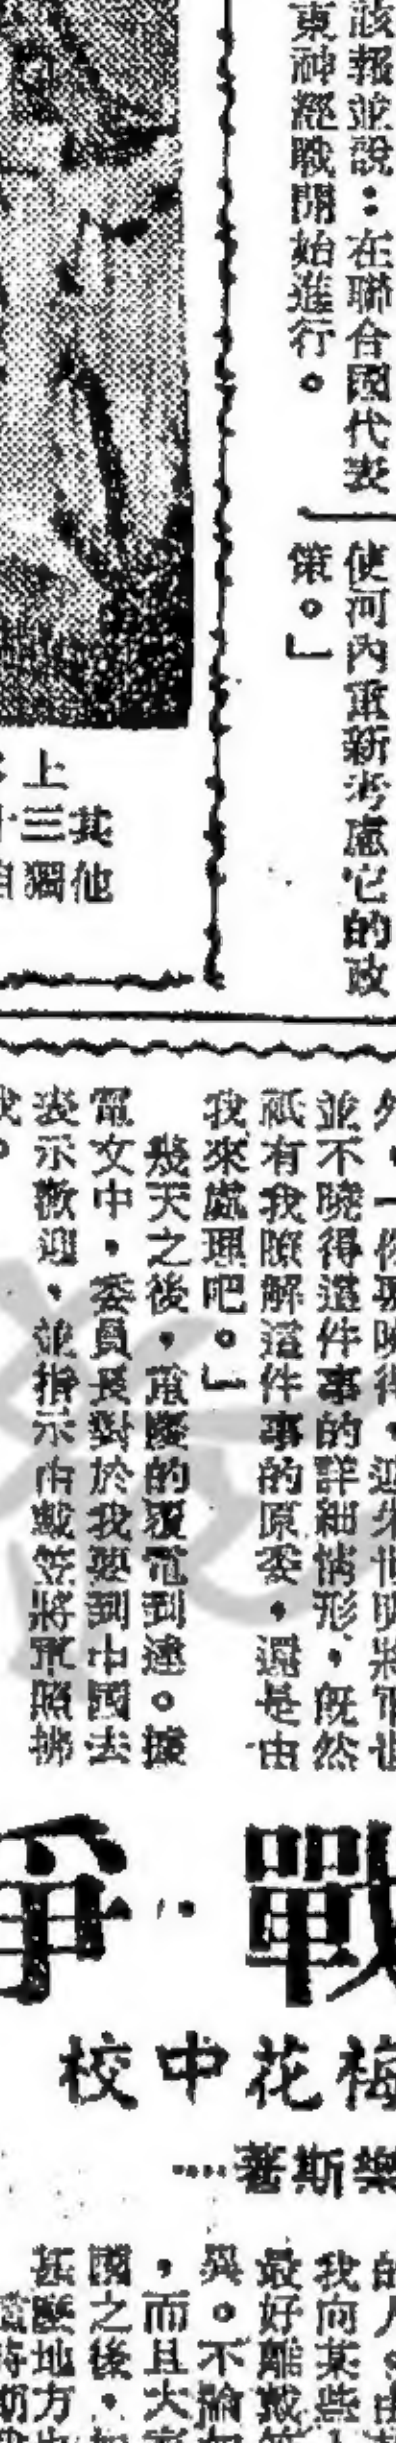 該報並說：在聯合國代表
東神經戰開始進行。
使河內重新考慮它的政
策。」
其他
三獨
上
並不曉得這件事的詳細情形，既然
祇有我瞭解這件事的原委，還是由
我來處理吧。」
幾天之後，重慶的覆電到達。據
電文中，委員長對於我要到中國去
表示歡迎，並指示由戴笠將軍照拂
戰爭
梅花中校
樂斯著
我向某些
最好離戴笠
異。不論
，而且大
國之後，
甚麼地方